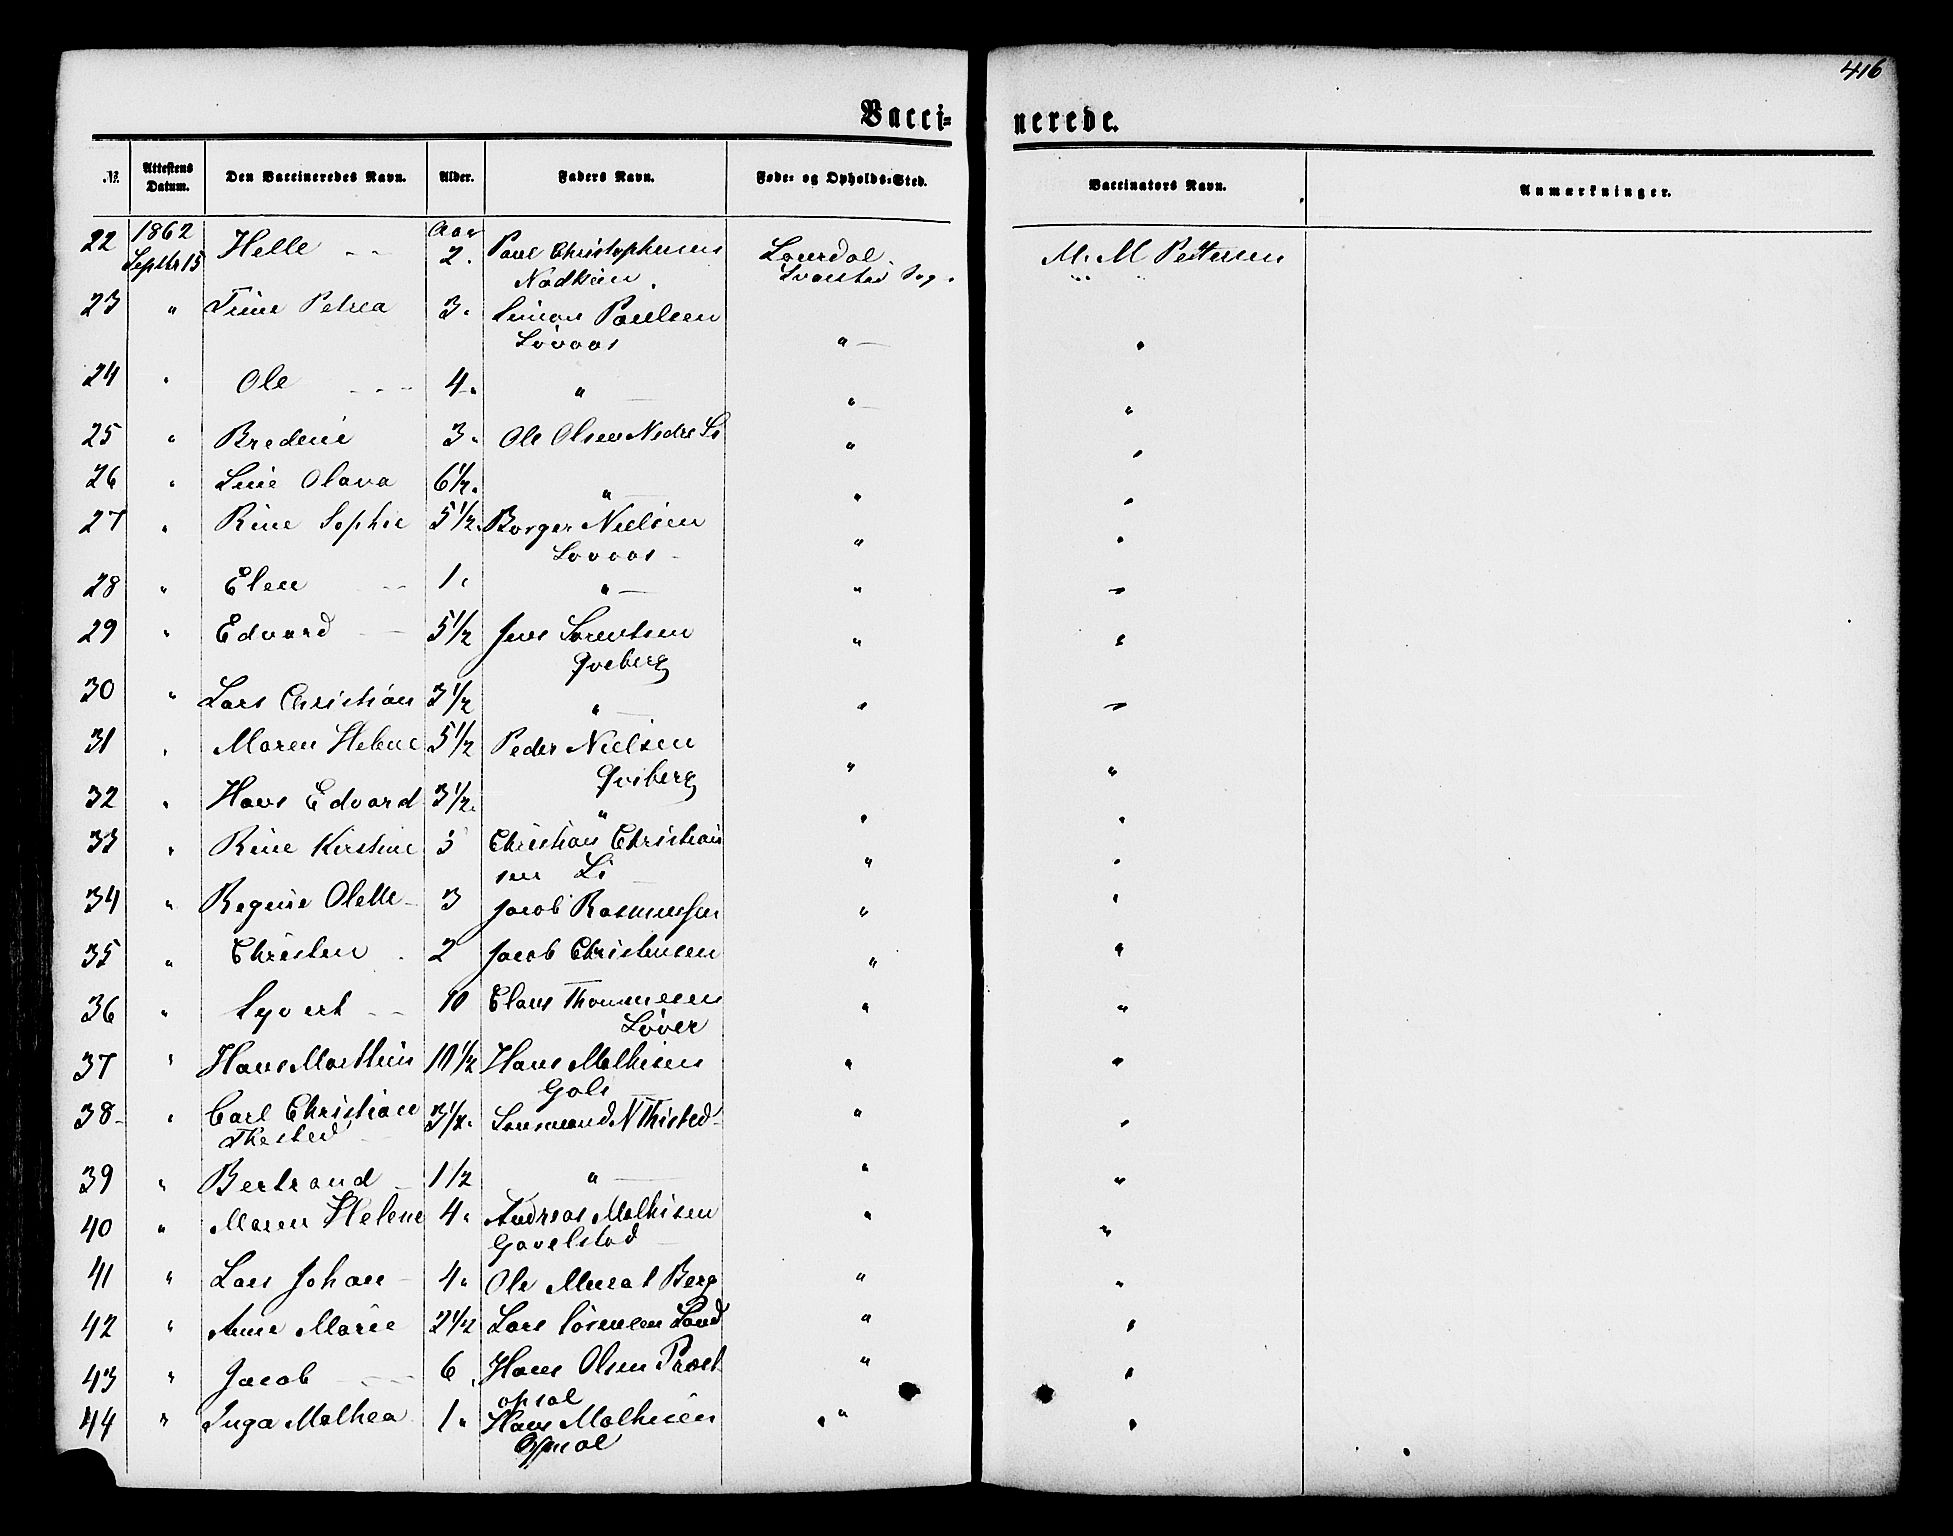 416
Vacci= nerede.
№ Attestens Datum. Den Vaccineredes Navn. Alder. Faders Navn. Føde- og Opholds-Sted. Vaccinators Navn. Anmærkninger.
1862 Aar
22 Septbr 15 Helle 2. Poul Christophersen Laurdal. M. M Pettersen
Svarstad Sog.
23 " Trine Petrea 3. Simon Paulsen
Lövaas " "
24 " Ole 4. " " "
25 " Bredine 3. Ole Olsen Nedre Li " "
26 " Line Olava 6½. " " "
27 " Rine Sophie 5½. Borger Nielsen " "
Lovaas
28 " Elen 1. " " "
29 " Edvard 5½ Jens Sorentsen " "
Qveberg
30 " Lars Christian 3½ " " "
31 " Maren Helene 5½ Peder Nielsen
Qviberg " "
32 " Hans Edvard 3½. " " "
33 " Rine Kirstine 3 Christian Christian " "
sen Li
34 " Regine Olette 3 Jacob Rasmussen " "
35 " Christen 2 Jacob Christensen " "
36 " Syvert 10 Claus Thommesen " "
Löver
37 " Hans Marthin 10½ Hans Mathisen " "
Gols
38 " Carl Christian 3½. N Thisted " "
Thisted
39 " Bertrand 1½ " " "
40 " Maren Helene 4. Andreas Mathisen " "
Gavelstad
41 " Lars Johan 4. Ole Berg " "
42 " Anne Marie 2½ Lars Sörensen Land " "
43 " Jacob 6. Hans Olsen Præst " "
opsal
44 " Inga Mathea 1. Hans Mathisen " "
Opsal